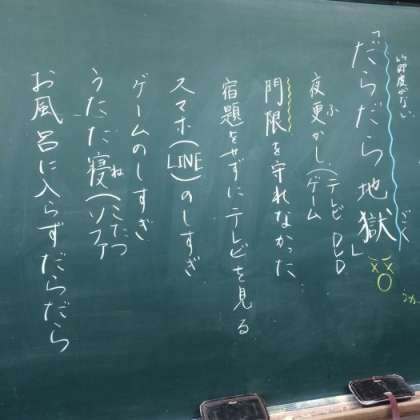 節度がない
「だらだら地獄」
ごく
夜更かし(テレビ DVD
ふ
ゲーム
門限を守れなかった
宿題をせずにテレビを見る
スマホ(LINE)のしすぎ
ゲームのしすぎ
うたた寝(こたつ
ね
ソファ
お風呂に入らずだらだら